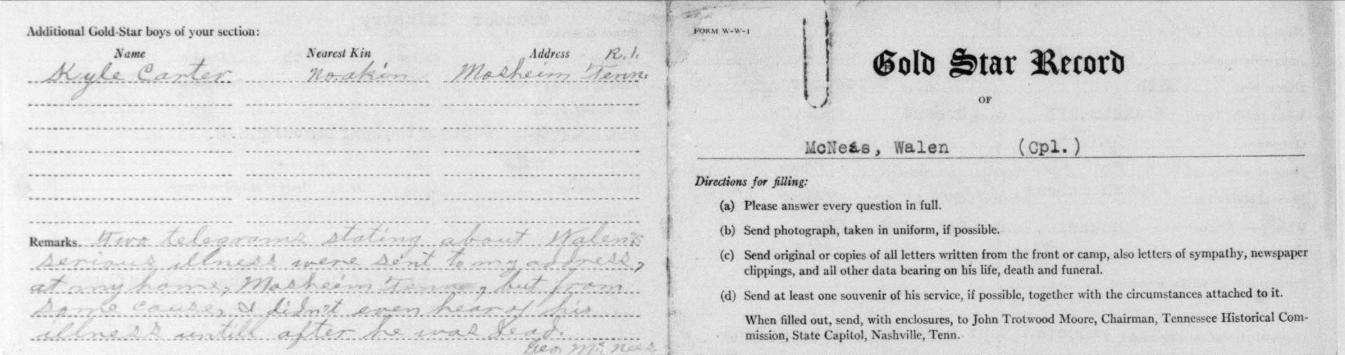 Additional Gold-Star boys of your section:
Name Nearest Kin Address R.1.
Kyle Carter no akin Mosheim Tenn.
Remarks. Two telegrams stating about Walen's
serious illness were sent to my address,
at my home, Mosheim Tenn, but from
some cause, I didn't even hear of his
illness untill after he was dead.
Geo. McNees
FORM W-W-1
Gold Star Record
OF
McNees, Walen (Cpl.)
Directions for filling:
(a) Please answer every question in full.
(b) Send photograph, taken in uniform, if possible.
(c) Send original or copies of all letters written from the front or camp, also letters of sympathy, newspaper
clippings, and all other data bearing on his life, death and funeral.
(d) Send at least one souvenir of his service, if possible, together with the circumstances attached to it.
When filled out, send, with enclosures, to John Trotwood Moore, Chairman, Tennessee Historical Com-
mission, State Capitol, Nashville, Tenn.